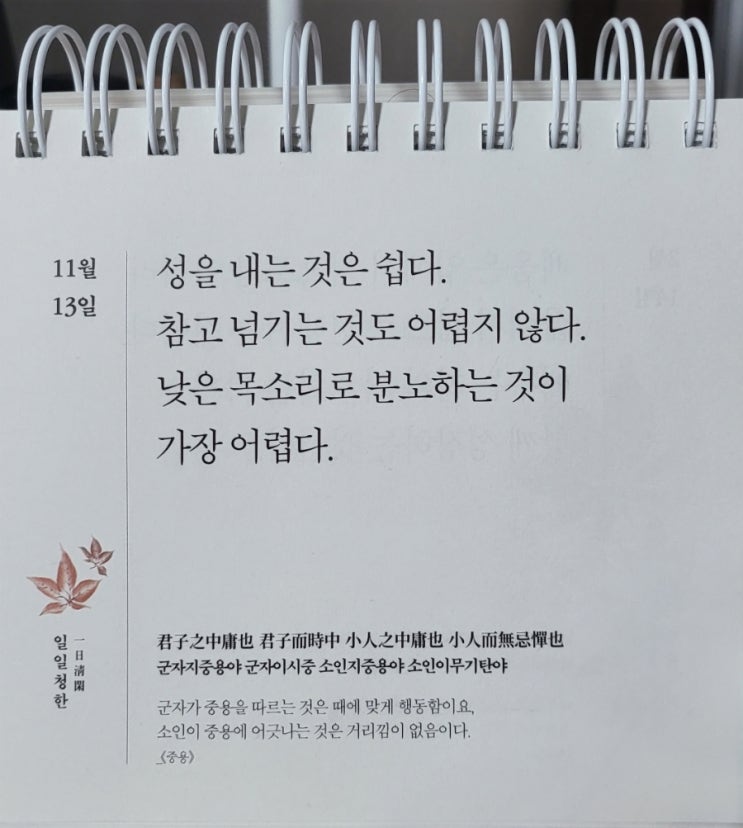 11월
13일
성을 내는 것은 쉽다.
참고 넘기는 것도 어렵지 않다.
낮은 목소리로 분노하는 것이
가장 어렵다.
一日淸閑
일일청한
君子之中庸也 君子而時中 小人之中庸也 小人而無忌憚也
군자지중용야 군자이시중 소인지중용야 소인이무기탄야
군자가 중용을 따르는 것은 때에 맞게 행동함이요,
소인이 중용에 어긋나는 것은 거리낌이 없음이다.
_《중용》